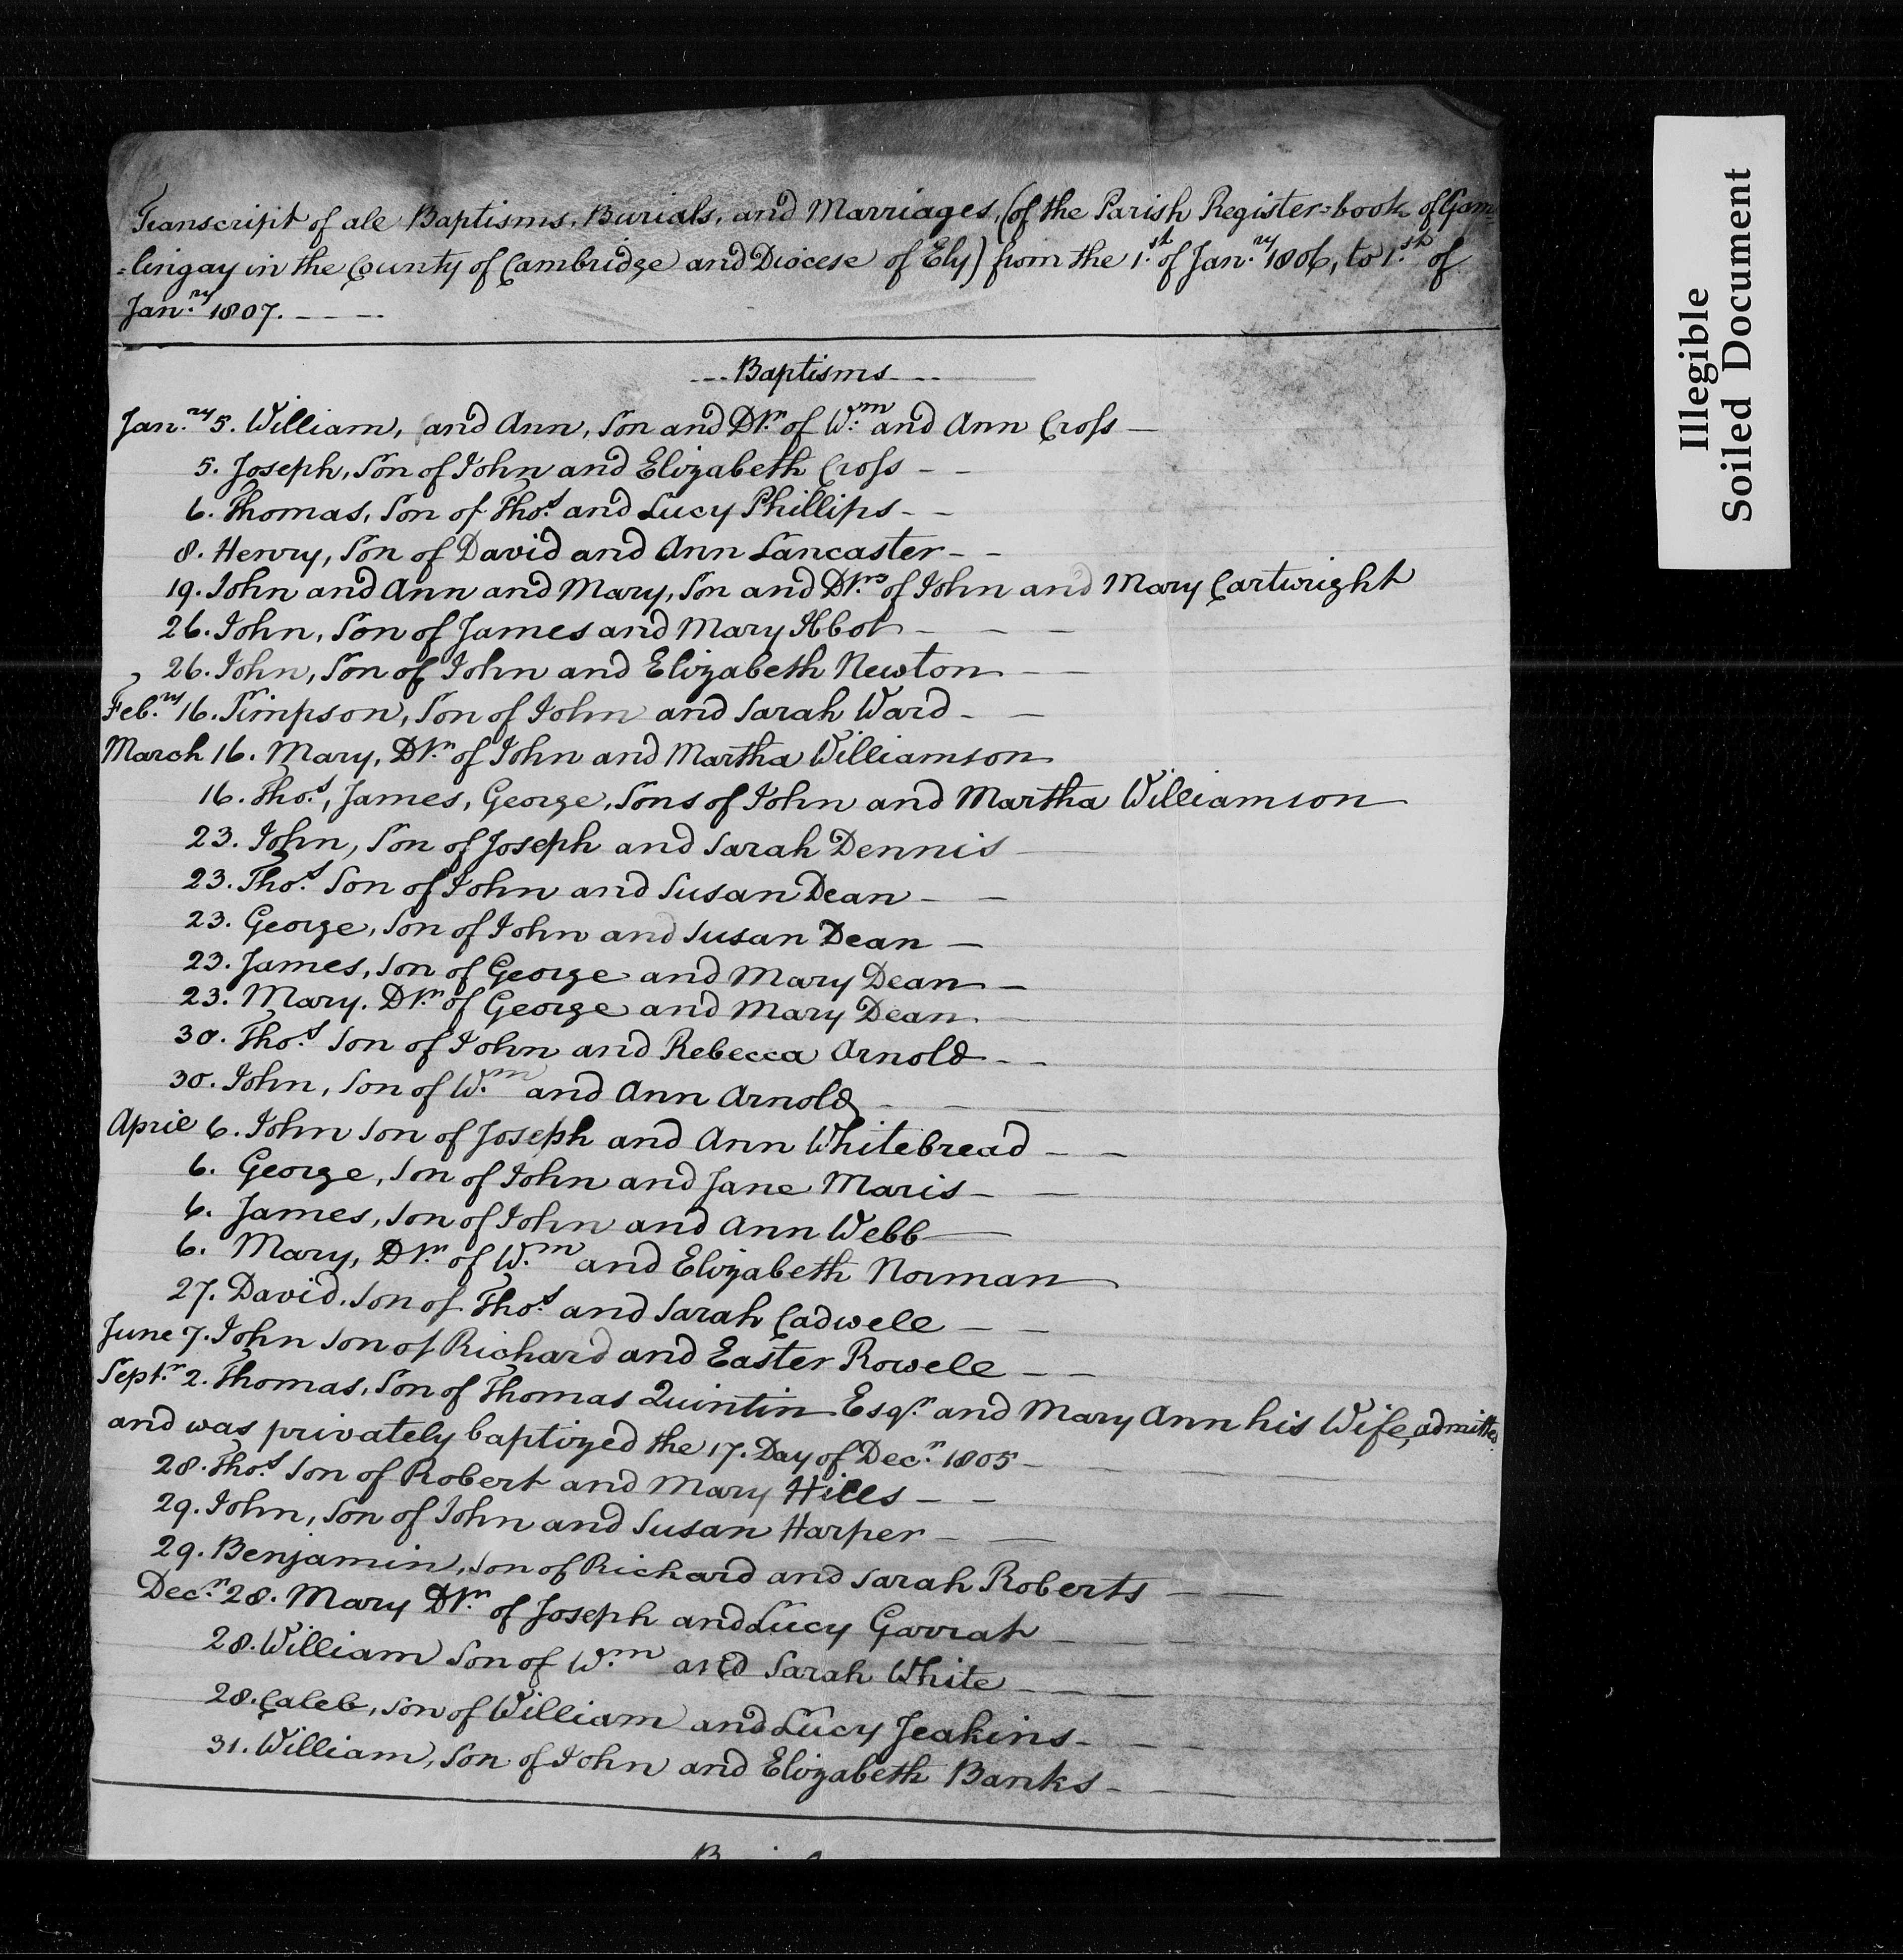 Transcript of all Baptisms, Burials, and Marriages, (of the Parish Register=book of Gam=
=lingay in the County of Cambridge and Diocese of Ely) from the 1.st of Jan.ry 1806, to 1.st of
Jan.ry 1807. - - - -
- - - Baptisms - - -
Jan.ry 5. William, and Ann, Son and Dr. of Wm. and Ann Cross -
5. Joseph, Son of John and Elizabeth Cross - -
6. Thomas, Son of Thos. and Lucy Phillips - -
8. Henry, Son of David and Ann Lancaster - -
19. John and Ann and Mary, Son and Drs. of John and Mary Cartwright
26. John, Son of James and Mary Abbot - - -
26. John, Son of John and Elizabeth Newton - -
Feb.ry 16. Simpson, Son of John and Sarah Ward - -
March 16. Mary, Dr. of John and Martha Williamson
16. Thos., James, George, Sons of John and Martha Williamson
23. John, Son of Joseph and Sarah Dennis -
23. Thos. Son of John and Susan Dean - -
23. George, Son of John and Susan Dean -
23. James, Son of George and Mary Dean -
23. Mary. Dr. of George and Mary Dean -
30. Thos. Son of John and Rebecca Arnold - -
30. John, Son of Wm. and Ann Arnold - - -
April 6. John Son of Joseph and Ann Whitebread - -
6. George, Son of John and Jane Maris - -
6. James, Son of John and Ann Webb -
6. Mary, Dr. of Wm. and Elizabeth Norman
27. David. Son of Thos. and Sarah Cadwell - -
June 7. John Son of Richard and Easter Rowell - -
Sept.r 2. Thomas, Son of Thomas Quintin Esqr. and Mary Ann his Wife, admitted
and was privately baptized the 17. Day of Dec.r 1805 - - - -
28. Thos. Son of Robert and Mary Hills - -
29. John, Son of John and Susan Harper - -
29. Benjamin, Son of Richard and Sarah Roberts - -
Dec.r 28. Mary Dr. of Joseph and Lucy Garrat - - -
28. William Son of Wm. and Sarah White - - -
28. Caleb, Son of William and Lucy Jeakins - - -
31. William, Son of John and Elizabeth Banks - - -
Illegible
Soiled Document